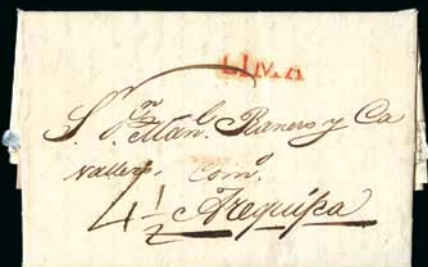 LIMA
S.r D.n Man.l Ranero y Ca
vallero. Com.o
4 1/2 Arequipa